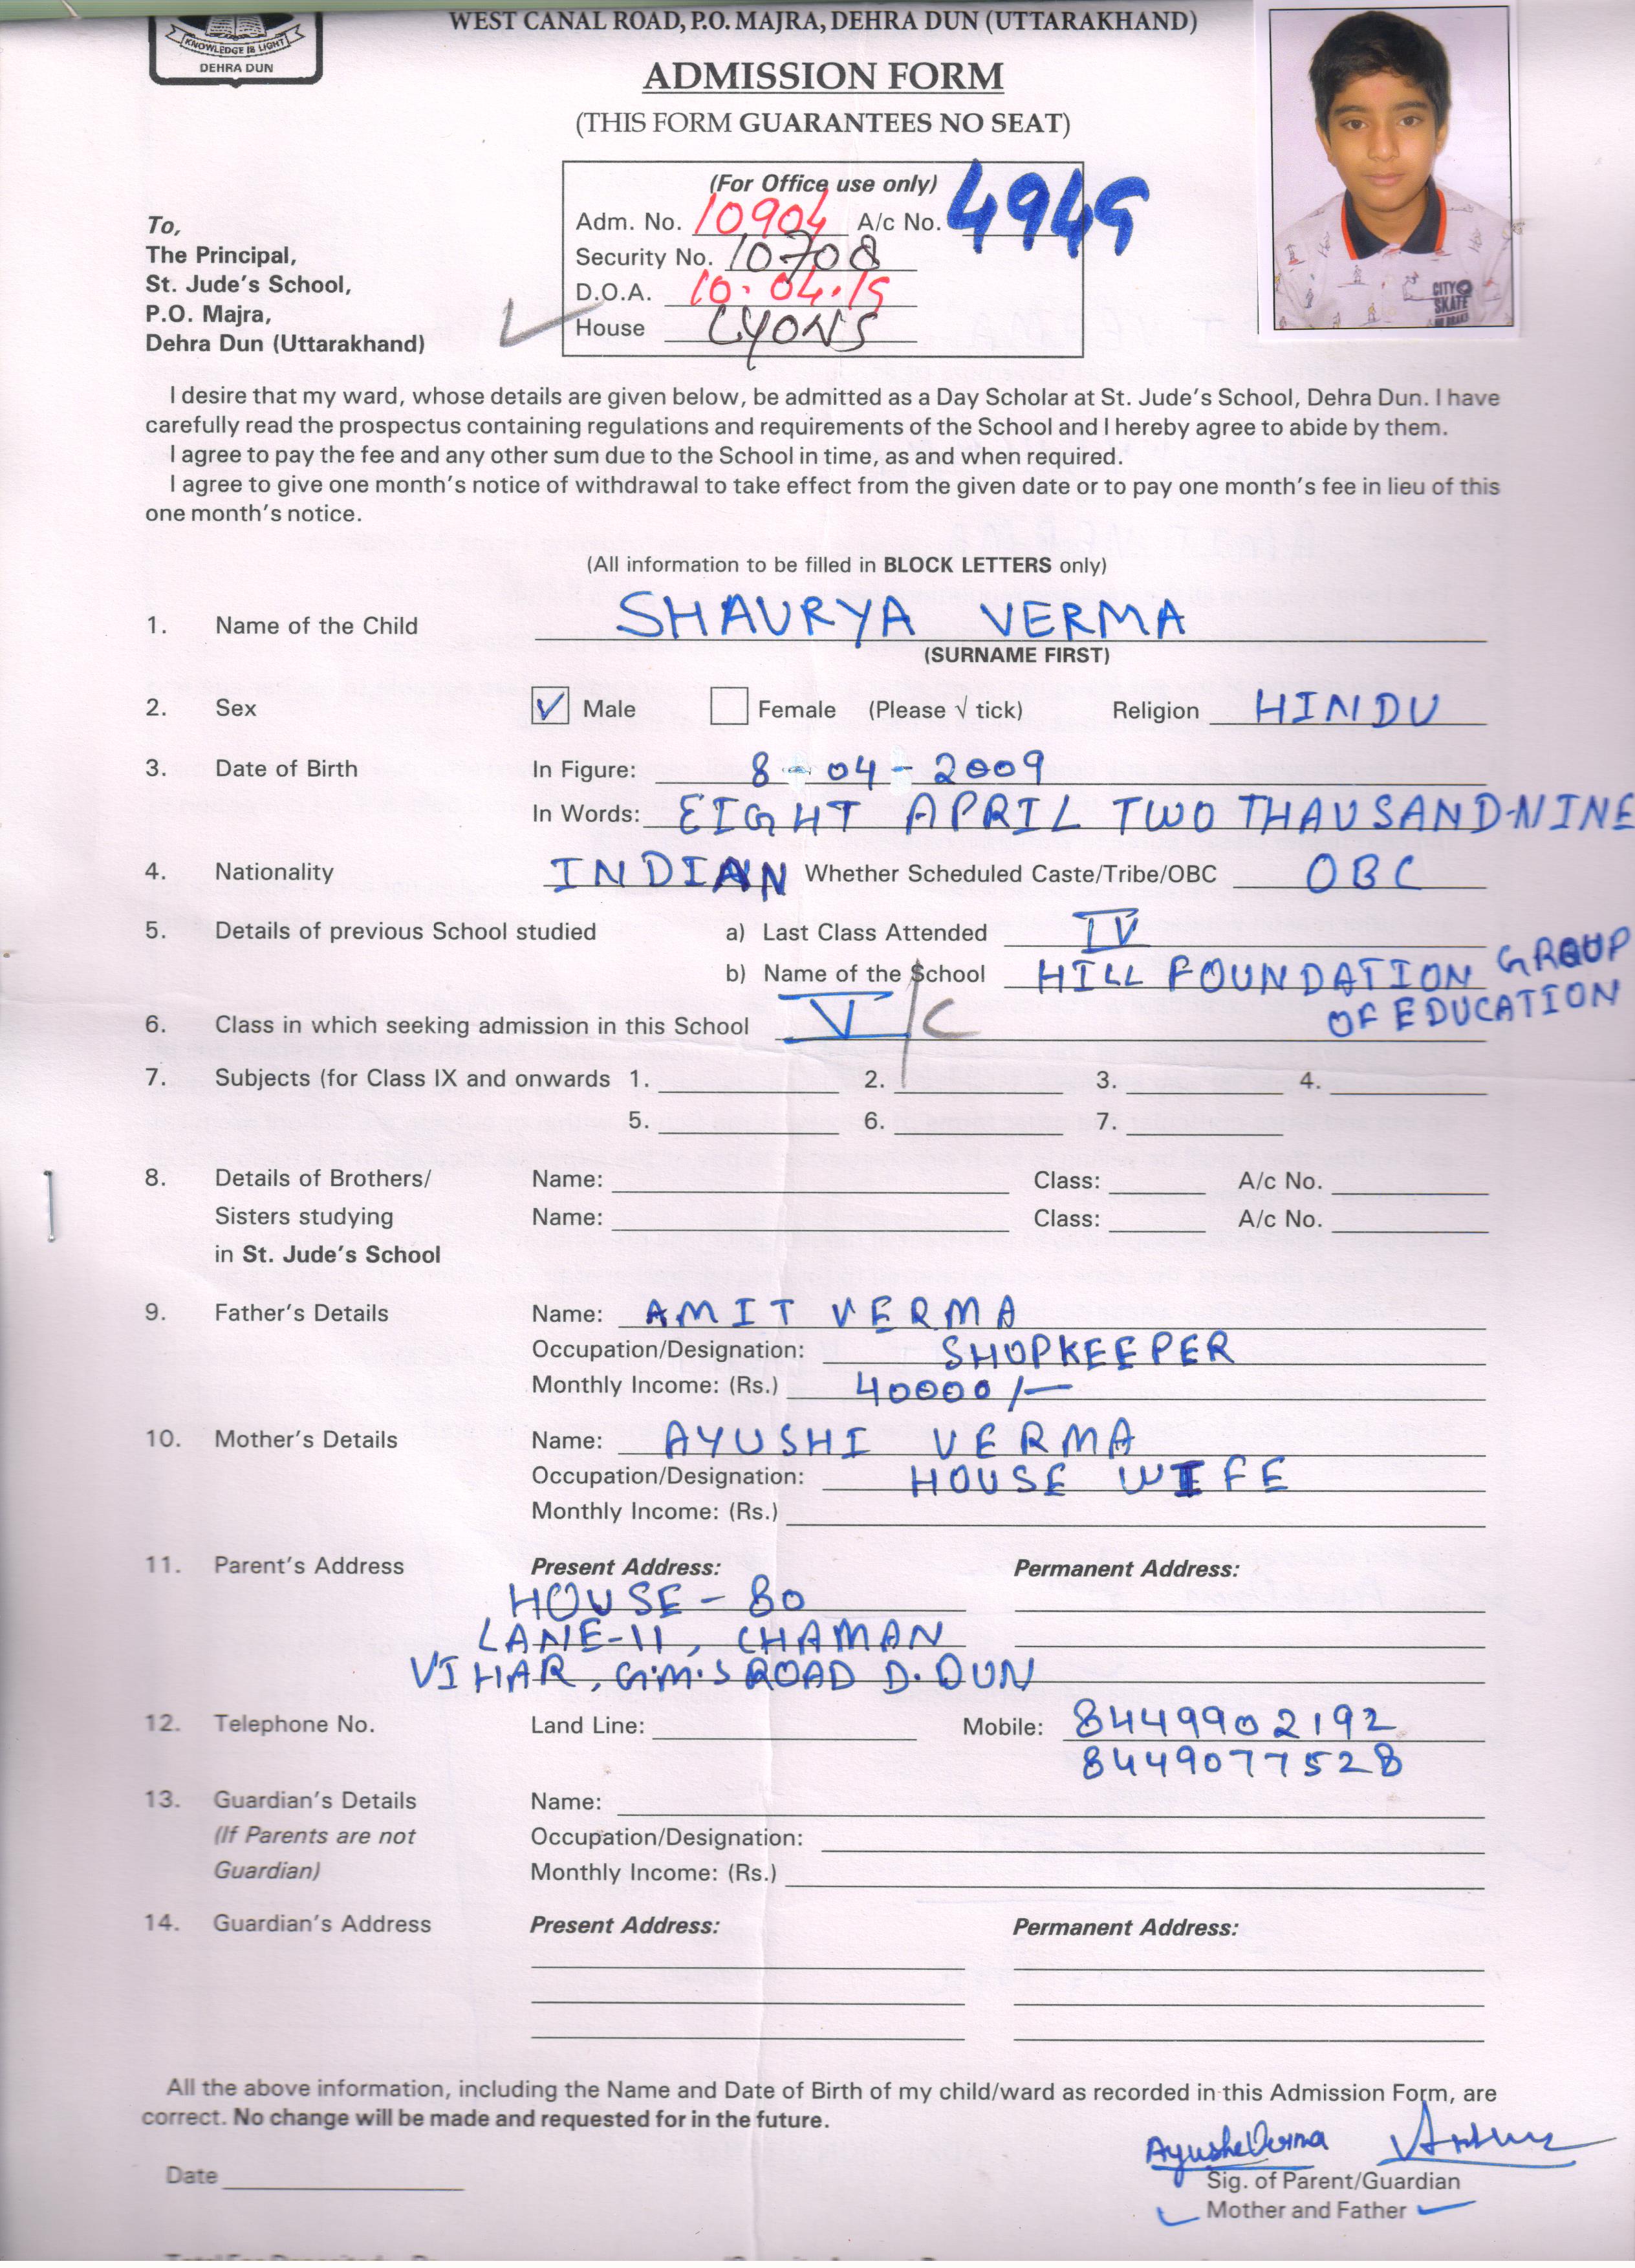 WEST CANAL ROAD, P.O. MAJRA, DEHRA DUN (UTTARAKHAND)
KNOWLEDGE IS LIGHT
DEHRA DUN
ADMISSION FORM
(THIS FORM GUARANTEES NO SEAT)
(For Office use only)
Adm. No. 10904 A/c No. 4949
Security No. 10708
D.O.A. 10.04.19
House LYONS
To,
The Principal,
St. Jude's School,
P.O. Majra,
Dehra Dun (Uttarakhand)
CITY
SKATE
I desire that my ward, whose details are given below, be admitted as a Day Scholar at St. Jude's School, Dehra Dun. I have
carefully read the prospectus containing regulations and requirements of the School and I hereby agree to abide by them.
I agree to pay the fee and any other sum due to the School in time, as and when required.
I agree to give one month's notice of withdrawal to take effect from the given date or to pay one month's fee in lieu of this
one month's notice.
(All information to be filled in BLOCK LETTERS only)
1. Name of the Child SHAURYA VERMA
(SURNAME FIRST)
2. Sex ✓ Male Female (Please √ tick) Religion HINDU
3. Date of Birth In Figure: 8-04-2009
In Words: EIGHT APRIL TWO THAUSAND-NINE
4. Nationality INDIAN Whether Scheduled Caste/Tribe/OBC OBC
5. Details of previous School studied a) Last Class Attended IV
b) Name of the School HILL FOUNDATION GROUP
OF EDUCATION
6. Class in which seeking admission in this School V/C
7. Subjects (for Class IX and onwards 1. 2. 3. 4.
5. 6. 7.
8. Details of Brothers/ Name: Class: A/c No.
Sisters studying Name: Class: A/c No.
in St. Jude's School
9. Father's Details Name: AMIT VERMA
Occupation/Designation: SHOPKEEPER
Monthly Income: (Rs.) 40000/-
10. Mother's Details Name: AYUSHI VERMA
Occupation/Designation: HOUSE WIFE
Monthly Income: (Rs.)
11. Parent's Address Present Address: Permanent Address:
HOUSE - 80
LANE-11, CHAMAN
VIHAR, G.M.S ROAD D.DUN
12. Telephone No. Land Line: Mobile: 8449902192
8449077528
13. Guardian's Details Name:
(If Parents are not Occupation/Designation:
Guardian) Monthly Income: (Rs.)
14. Guardian's Address Present Address: Permanent Address:
All the above information, including the Name and Date of Birth of my child/ward as recorded in this Admission Form, are
correct. No change will be made and requested for in the future.
Ayushi Verma
Date
Sig. of Parent/Guardian
Mother and Father